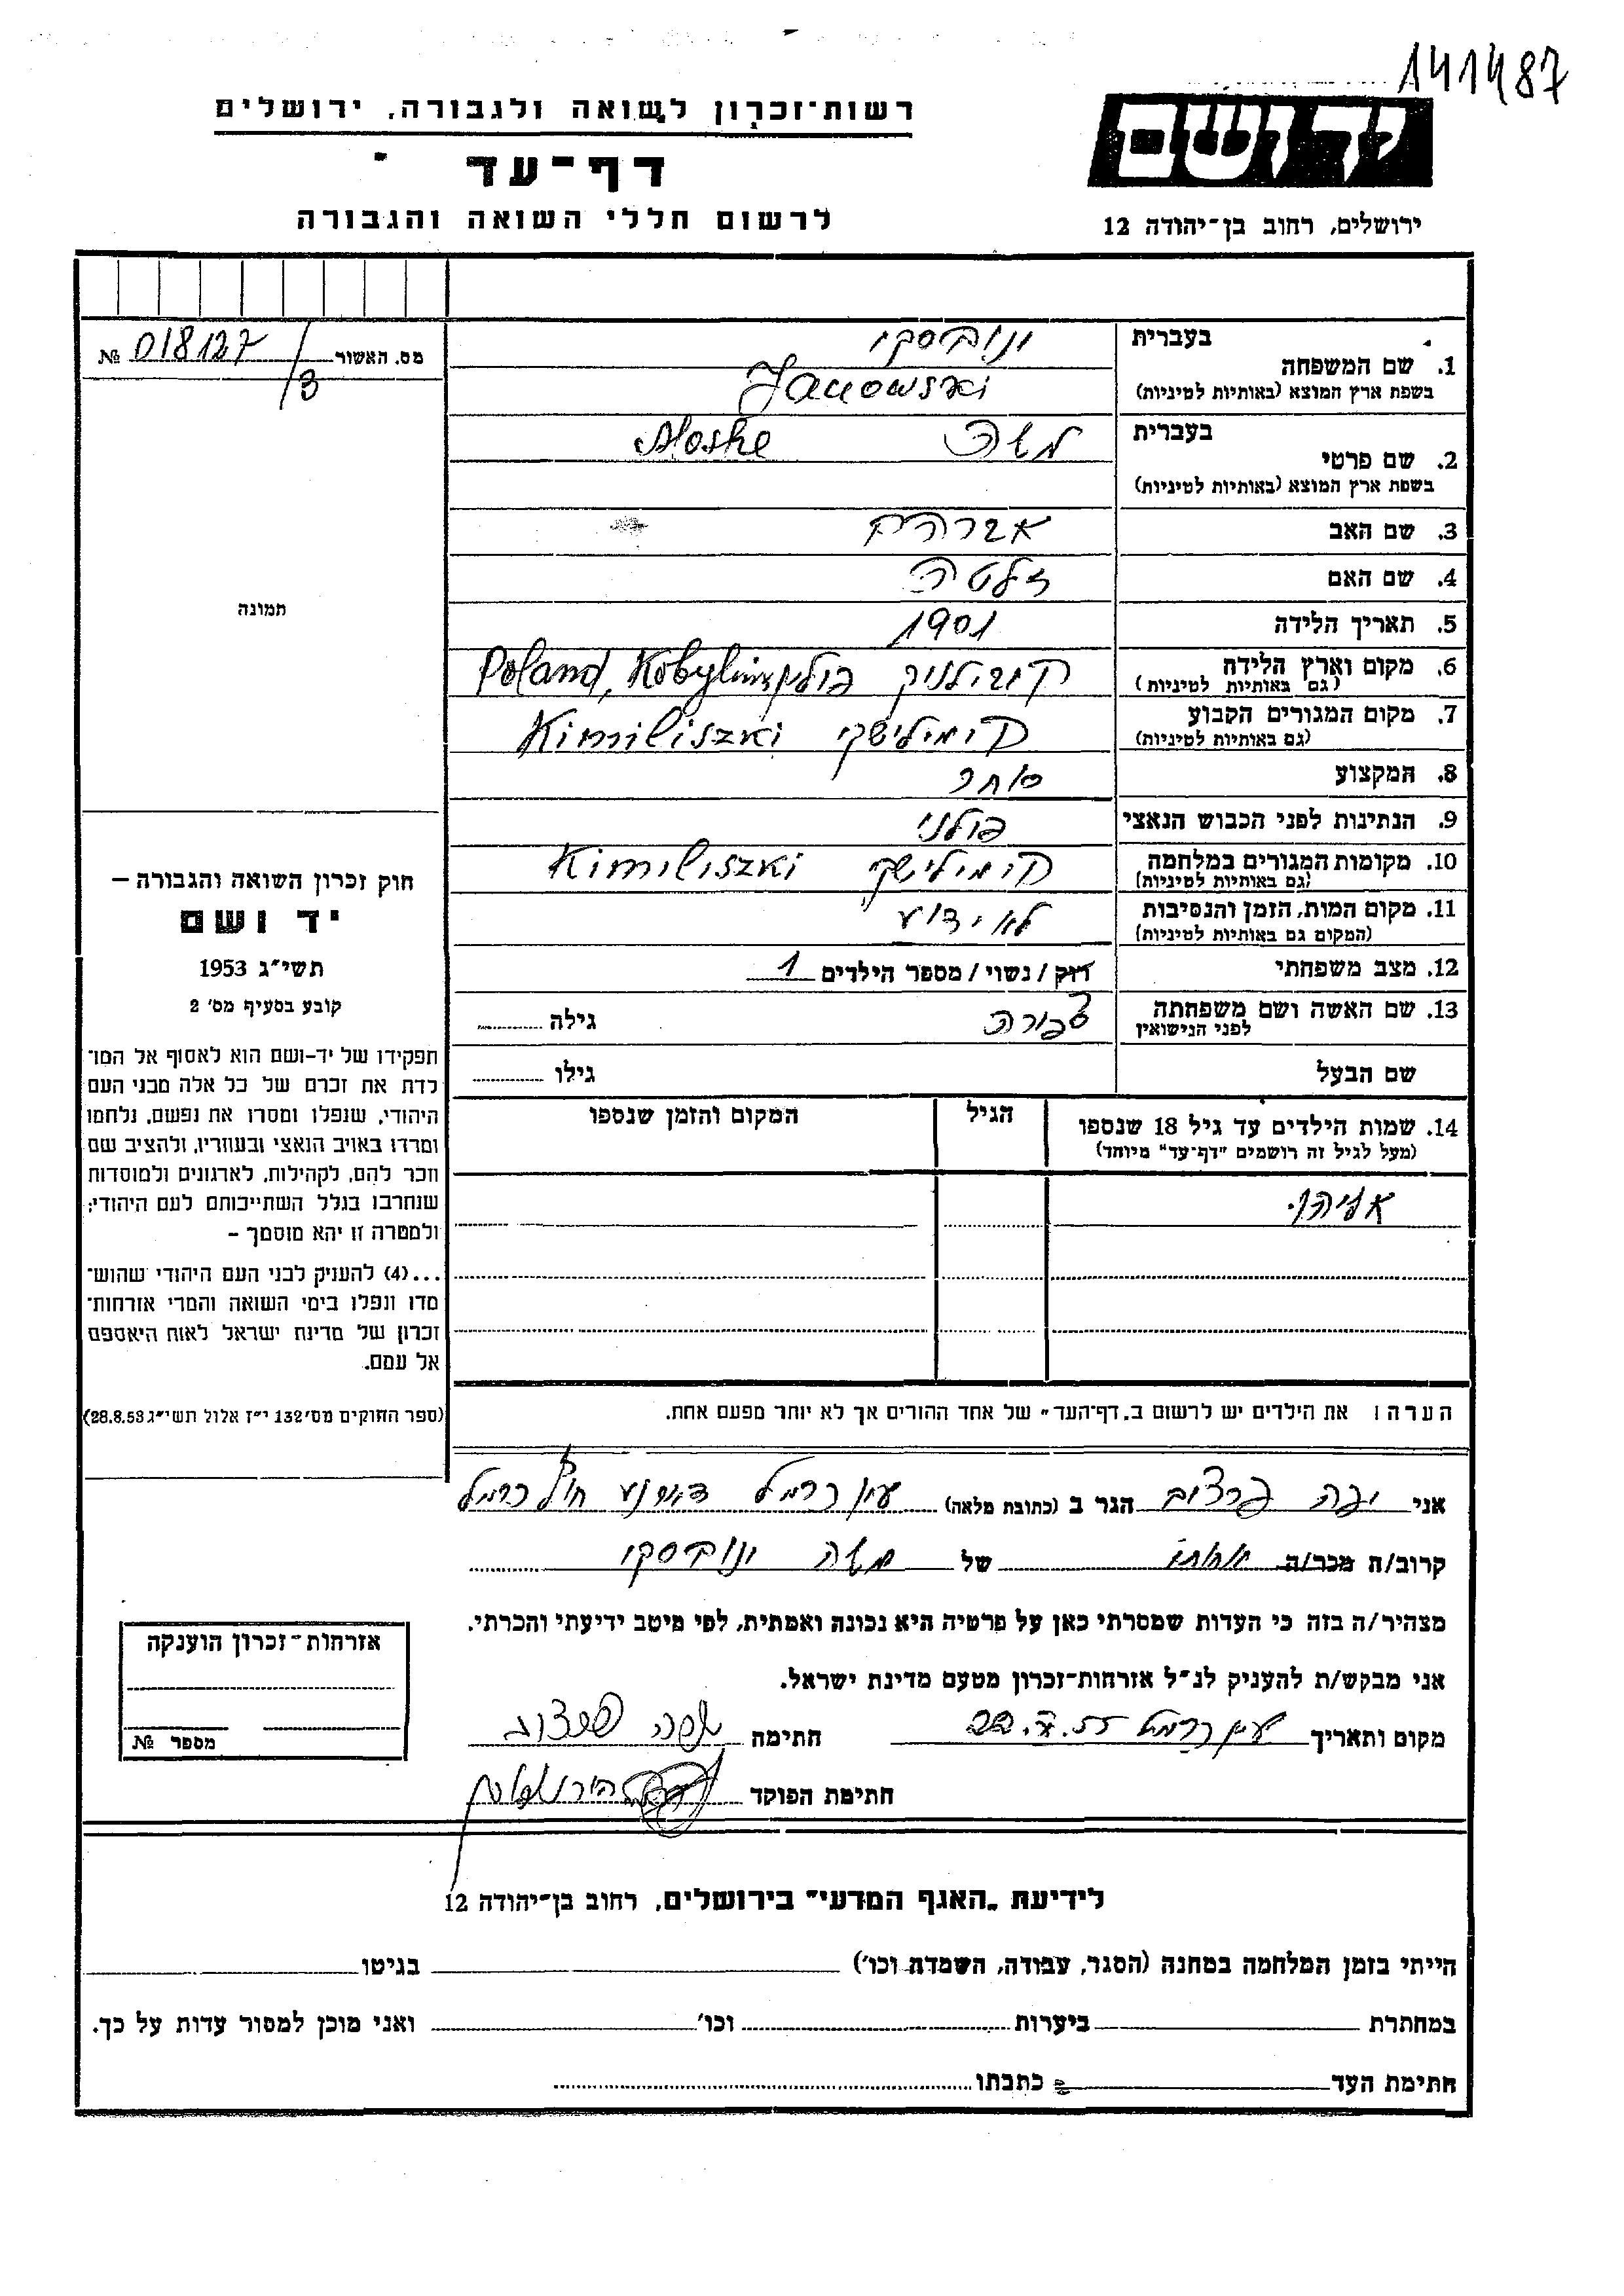 141487
רשות־זכרון לשואה ולגבורה, ירושלים
דף־עד
לרשום חללי השואה והגבורה
יד ושם
ירושלים, רחוב בן־יהודה 12
מס. האשור № 018127/3
1. שם המשפחה
בעברית ינובסקי
בשפת ארץ המוצא (באותיות לטיניות) Janowski
2. שם פרטי
בעברית משה Moshe
בשפת ארץ המוצא (באותיות לטיניות)
3. שם האב אברהם
4. שם האם זלטה
5. תאריך הלידה 1901
6. מקום וארץ הלידה קובילניק פולין Poland,
(גם באותיות לטיניות)
7. מקום המגורים הקבוע קימילישקי Kimiliszki
(גם באותיות לטיניות)
8. המקצוע סוחר
9. הנתינות לפני הכבוש הנאצי פולני
10. מקומות המגורים במלחמה קימילישקי Kimiliszki
(גם באותיות לטיניות)
11. מקום המות, הזמן והנסיבות לא ידוע
(המקום גם באותיות לטיניות)
12. מצב משפחתי רווק / נשוי / מספר הילדים 1
13. שם האשה ושם משפחתה צפורה גילה
לפני הנישואין
שם הבעל גילו
14. שמות הילדים עד גיל 18 שנספו הגיל המקום והזמן שנספו
(מעל לגיל זה רושמים "דף־עד" מיוחד)
אליהו.
הערה! את הילדים יש לרשום ב„דף־העד" של אחד ההורים אך לא יותר מפעם אחת.
תמונה
חוק זכרון השואה והגבורה –
יד ושם
תשי"ג 1953
קובע בסעיף מס' 2
תפקידו של יד–ושם הוא לאסוף אל המו־
לדת את זכרם של כל אלה מבני העם
היהודי, שנפלו ומסרו את נפשם, נלחמו
ומרדו באויב הנאצי ובעוזריו, ולהציב שם
וזכר להם, לקהילות, לארגונים ולמוסדות
שנחרבו בגלל השתייכותם לעם היהודי;
ולמטרה זו יהא מוסמך –
...(4) להעניק לבני העם היהודי שהוש־
מדו ונפלו בימי השואה והמרי אזרחות־
זכרון של מדינת ישראל לאות היאספם
אל עמם.
(ספר החוקים מס' 132 י"ז אלול תשי"ג 28.8.53)
אני יפה הגר ב (כתובת מלאה) עין כרמל דאר נע חוף כרמל
קרוב/ה מכר/ה אחותו של משה ינובסקי
מצהיר/ה בזה כי העדות שמסרתי כאן על פרטיה היא נכונה ואמתית, לפי מיטב ידיעתי והכרתי.
אני מבקש/ת להעניק לנ"ל אזרחות־זכרון מטעם מדינת ישראל.
מקום ותאריך עין כרמל חתימה
חתימת הפוקד
אזרחות־זכרון הוענקה
מספר №
לידיעת „האגף המדעי" בירושלים, רחוב בן־יהודה 12
הייתי בזמן המלחמה במחנה (הסגר, עבודה, השמדת וכו') בגיטו
במחתרת ביערות וכו' ואני מוכן למסור עדות על כך.
חתימת העד כתבתו